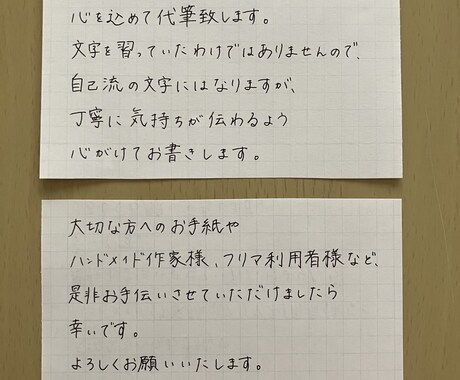 心を込めて代筆致します。
文字を習っていたわけではありませんので、
自己流の文字にはなりますが、
丁寧に気持ちが伝わるよう
心がけてお書きします。
大切な方へのお手紙や
ハンドメイド作家様、フリマ利用者様など、
是非お手伝いさせていただけましたら
幸いです。
よろしくお願いいたします。